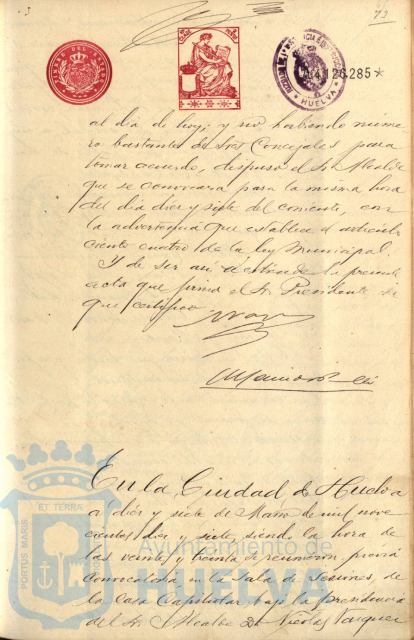 73
TIMBRE DEL ESTADO
A.4126.285*
HUELVA
al dia de hoy; y no habiendo núme
ro bastantes de Sres Concejales para
tomar acuerdo, dispuso el Sr Alcalde
que se convocara para la misma hora
del dia diez y siete del corriente, con
la advertencia que establece el articulo
ciento cuatro de la ley Municipal.
Y de ser asi se estiende la presente
acta que firma el Sr Presidente de
que certifico
En la Ciudad de Huelva
a diez y siete de Marzo de mil nove
cientos diez y siete, siendo la hora de
las veinte y treinta se reunieron previa
convocatoria en la Sala de Sesiones, de
la Casa Capitular bajo la presidencia
del Sr Alcalde Dn Nicolas Vazquez
ET TERRA
PORTUS MARIS
Ayuntamiento de
HUELVA